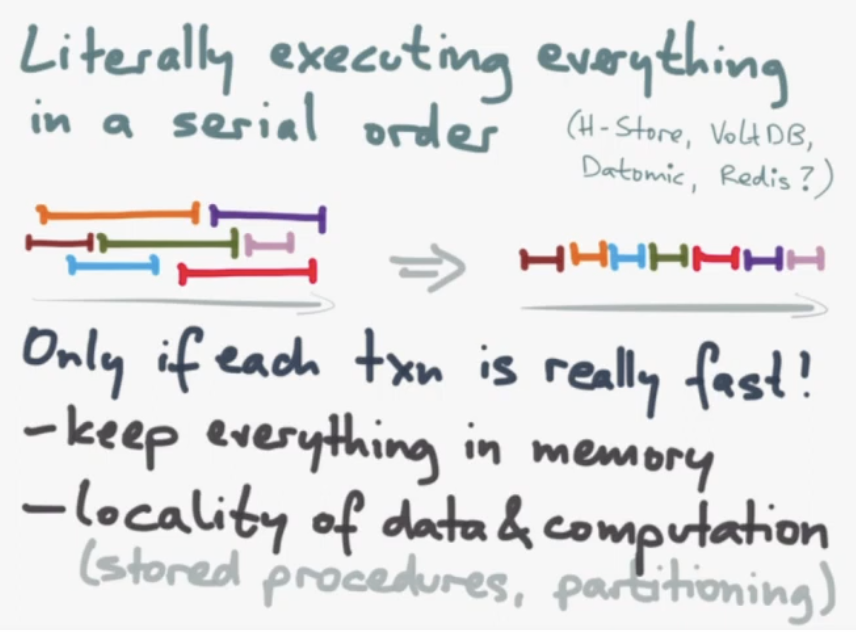 Literally executing everything
in a serial order
(H-Store, VoltDB,
Datomic, Redis?)
Only if each txn is really fast!
- keep everything in memory
- locality of data & computation
(stored procedures, partitioning)